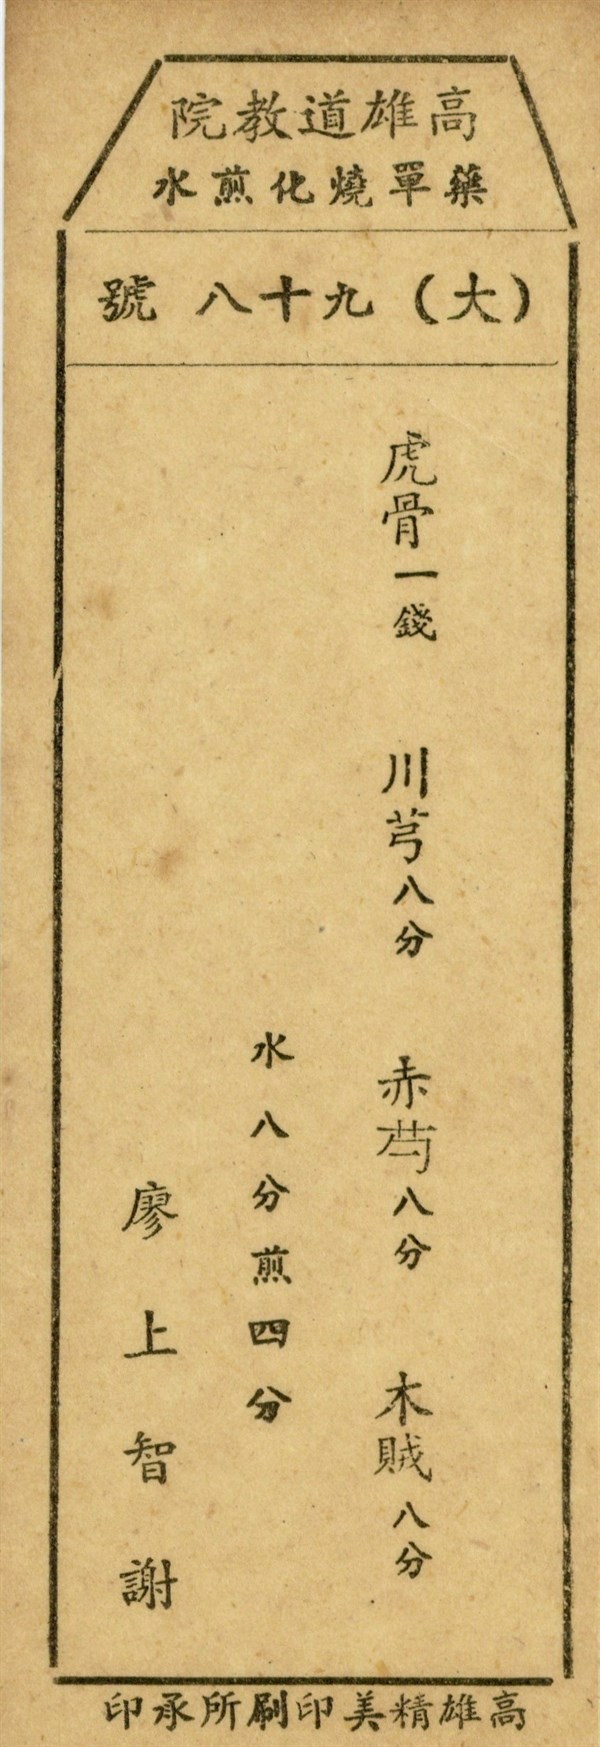 高雄道教院
藥單燒化煎水
（大）九十八號
虎骨一錢 川芎八分 赤芍八分 木賊八分
水八分煎四分
廖上智謝
高雄精美印刷所承印